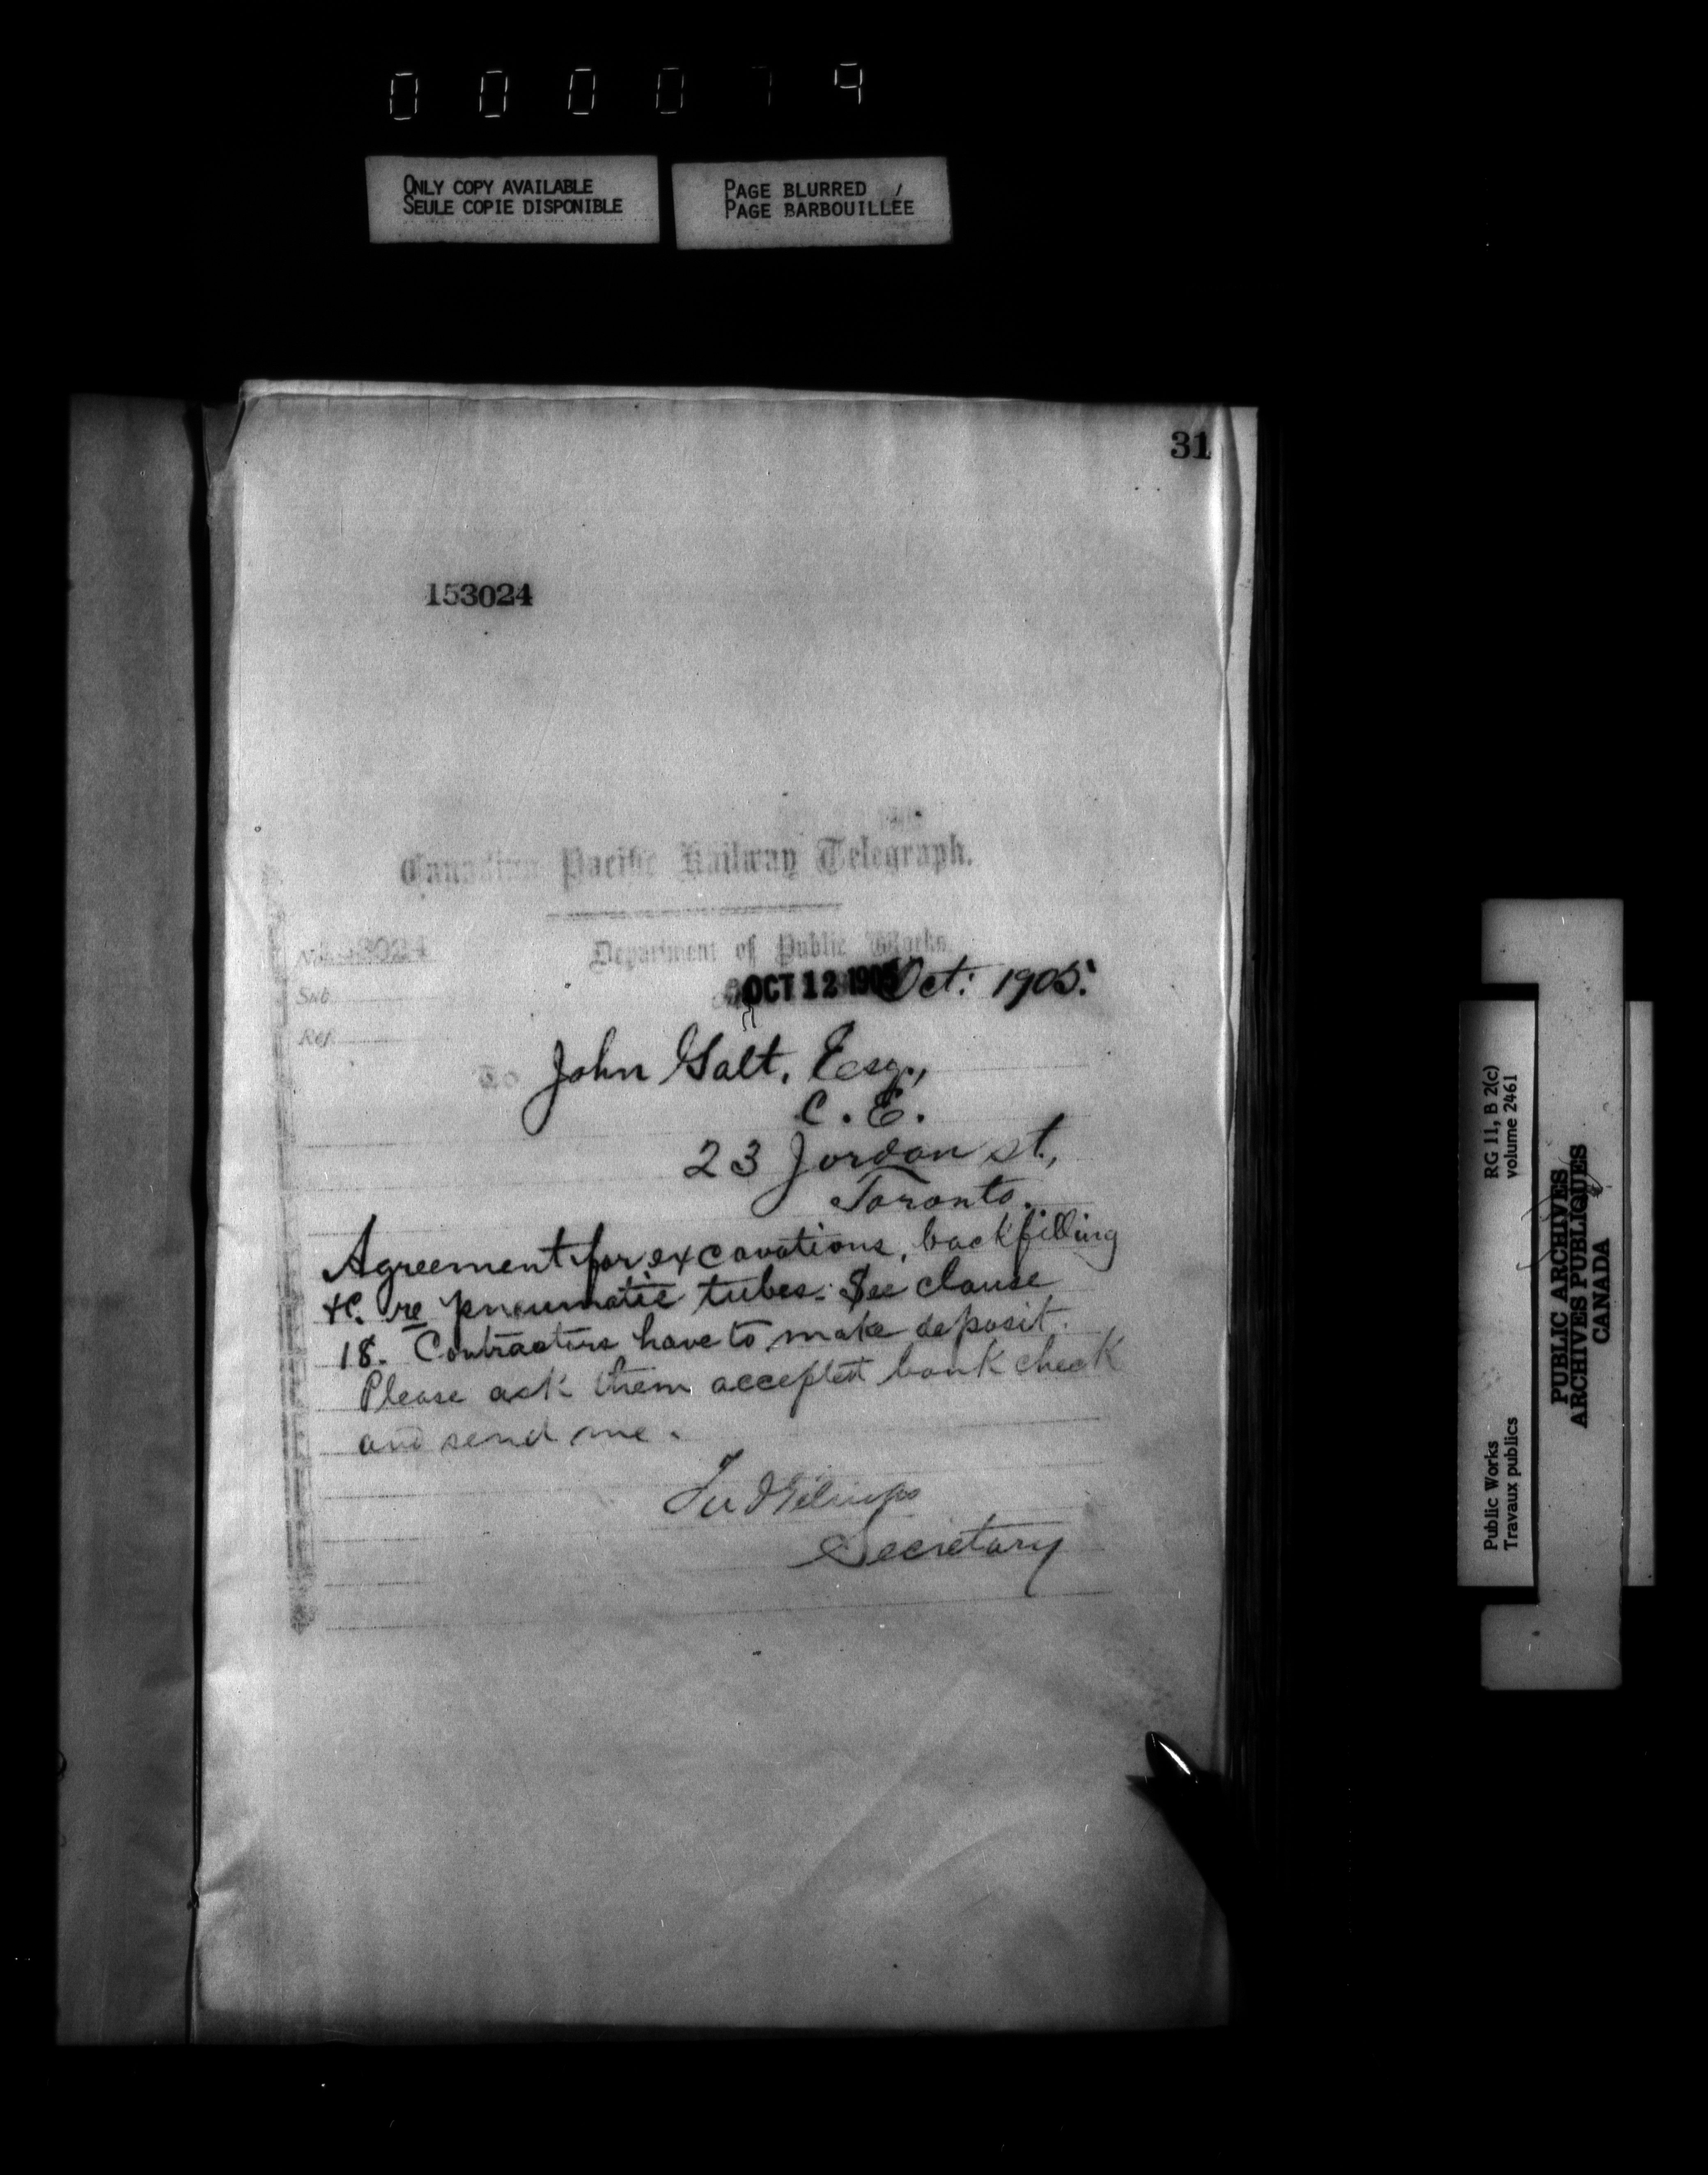 0 0 0 0 7 9
ONLY COPY AVAILABLE
SEULE COPIE DISPONIBLE
PAGE BLURRED
PAGE BARBOUILLÉE
31
153024
Canadian Pacific Railway Telegraph.
Department of Public Works.
No. 153024
Sub.
Ref.
OCT 12 1905 Oct: 1905.
To John Galt, Esq.,
C. E.
23 Jordan st.,
Toronto.
Agreement for excavations, backfilling
&c. re pneumatic tubes. See clause
18. Contractors have to make deposit.
Please ask them accepted bank check
and send me.
Secretary
Public Works
Travaux publics
RG 11, B 2(c)
volume 2461
PUBLIC ARCHIVES
ARCHIVES PUBLIQUES
CANADA